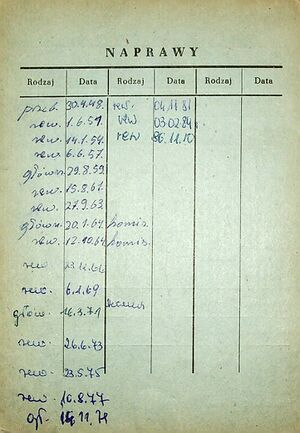 NAPRAWY
Rodzaj Data Rodzaj Data Rodzaj Data
przeb. 30.4.48. rew. 04.11 81
rew. 1.6.51. rew 03.02.84.
rew. 14.1.54. rew 86.11.10
rew. 6.6.57.
główn. 29.8.59.
rew. 15.8.61.
rew. 27.9.63.
główn. 20.1.64. komis.
rew. 12.10.64. komis.
rew 23.12.66
rew. 6.1.69
głów. 16.3.71
rew. 26.6.73
rew 23.5.75
rew. 10.8.77
gł. 14.11.79